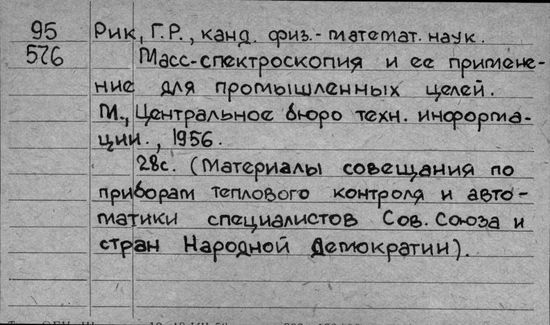 95 Рик, Г.Р., канд. физ.-математ. наук.
576 Масс-спектроскопия и ее примене-
ние для промышленных целей.
М., Центральное бюро техн. информа-
ции., 1956.
28с. (Материалы совещания по
приборам теплового контроля и авто-
матики специалистов Сов. Союза и
стран Народной Демократии).